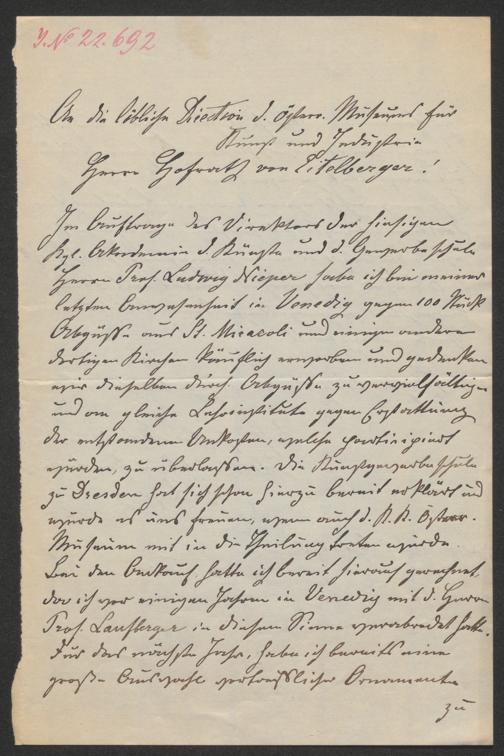 J. № 22.692
An die löbliche Direction d. österr. Museums für
Kunst und Industrie
Herrn Hofrath von Eitelberger!
Im Auftrage des Direktors der hiesigen
Kgl. Akademie d. Künste und d. Gewerbeschule
Herrn Prof. Ludwig Nieper habe ich bei meiner
letzten Anwesenheit in Venedig gegen 100 Stück
Abgüsse aus St. Miracoli und einigen andern
dortigen Kirchen käuflich erworben und gedenken
wir dieselben durch Abgüsse zu vervielfältigen
und an gleiche Lehrinstitute gegen Erstattung
der entstandenen Unkosten, welche participirt
würden, zu überlassen. Die Kunstgewerbeschule
zu Dresden hat sich schon hierzu bereit erklärt und
würde es uns freuen, wenn auch d. K. K. Österr.
Museum mit in die Theilung treten würde.
Bei den Ankauf hatte ich bereit hierauf gerechnet,
da ich vor einigen Jahren in Venedig mit d. Herrn
Prof. Laufberger in diesem Sinne verabredet hatte.
Für das nächste Jahr, habe ich bereits eine
große Auswahl vortrefflicher Ornamente
zu